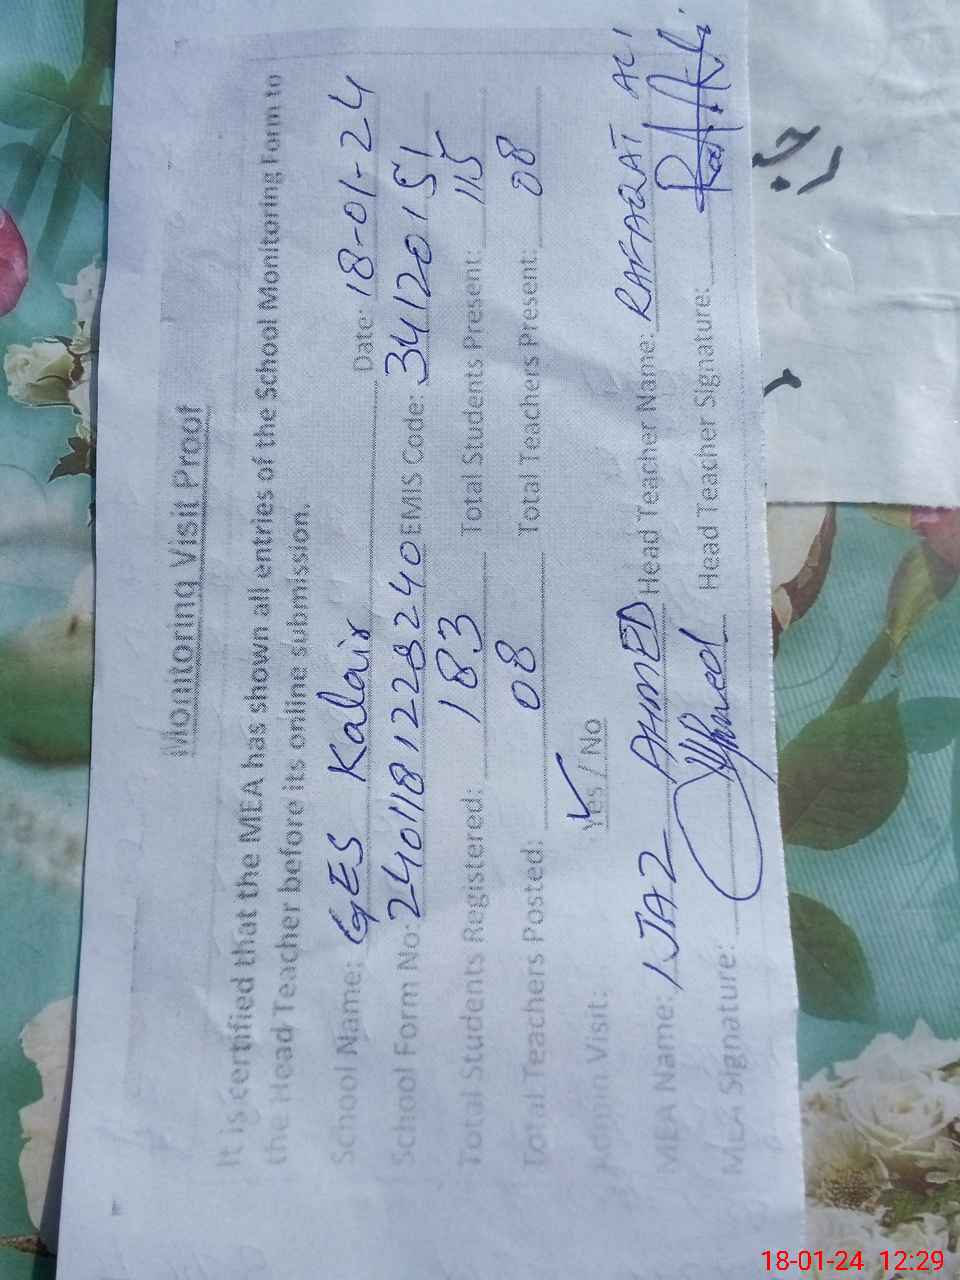 Monitoring Visit Proof
It is certified that the MEA has shown all entries of the School Monitoring Form to
the Head Teacher before its online submission.
School Name: GES Kalair Date: 18-01-24
School Form No: 2401181228240 EMIS Code: 34120151
Total Students Registered: 183 Total Students Present: 115
Total Teachers Posted: 08 Total Teachers Present: 08
Admin Visit: Yes / No
MEA Name: IJAZ AHMED Head Teacher Name: RAFAQAT ALI
MEA Signature: Head Teacher Signature:
18-01-24 12:29